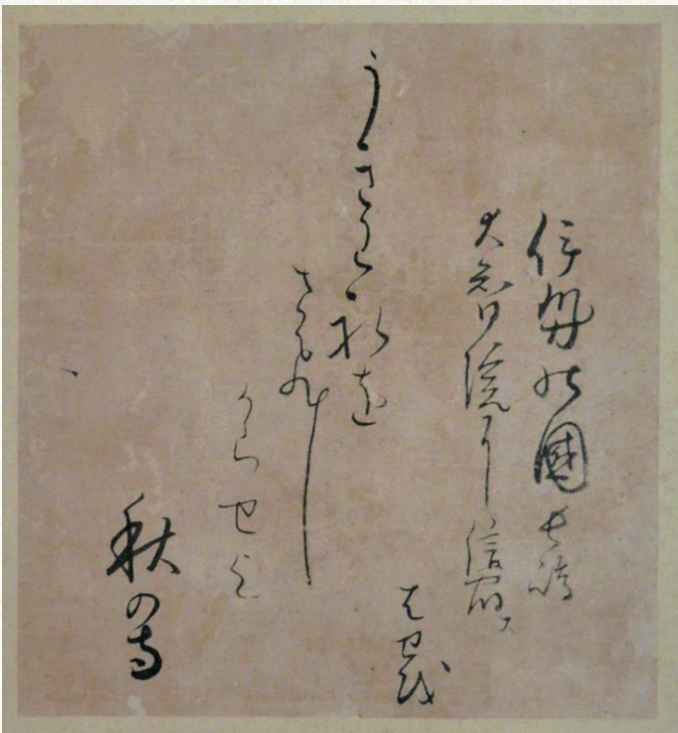 伊勢の國長嶋
大智院に信宿ス
はせを
うきわれを
さひし
からせよ
秋の寺